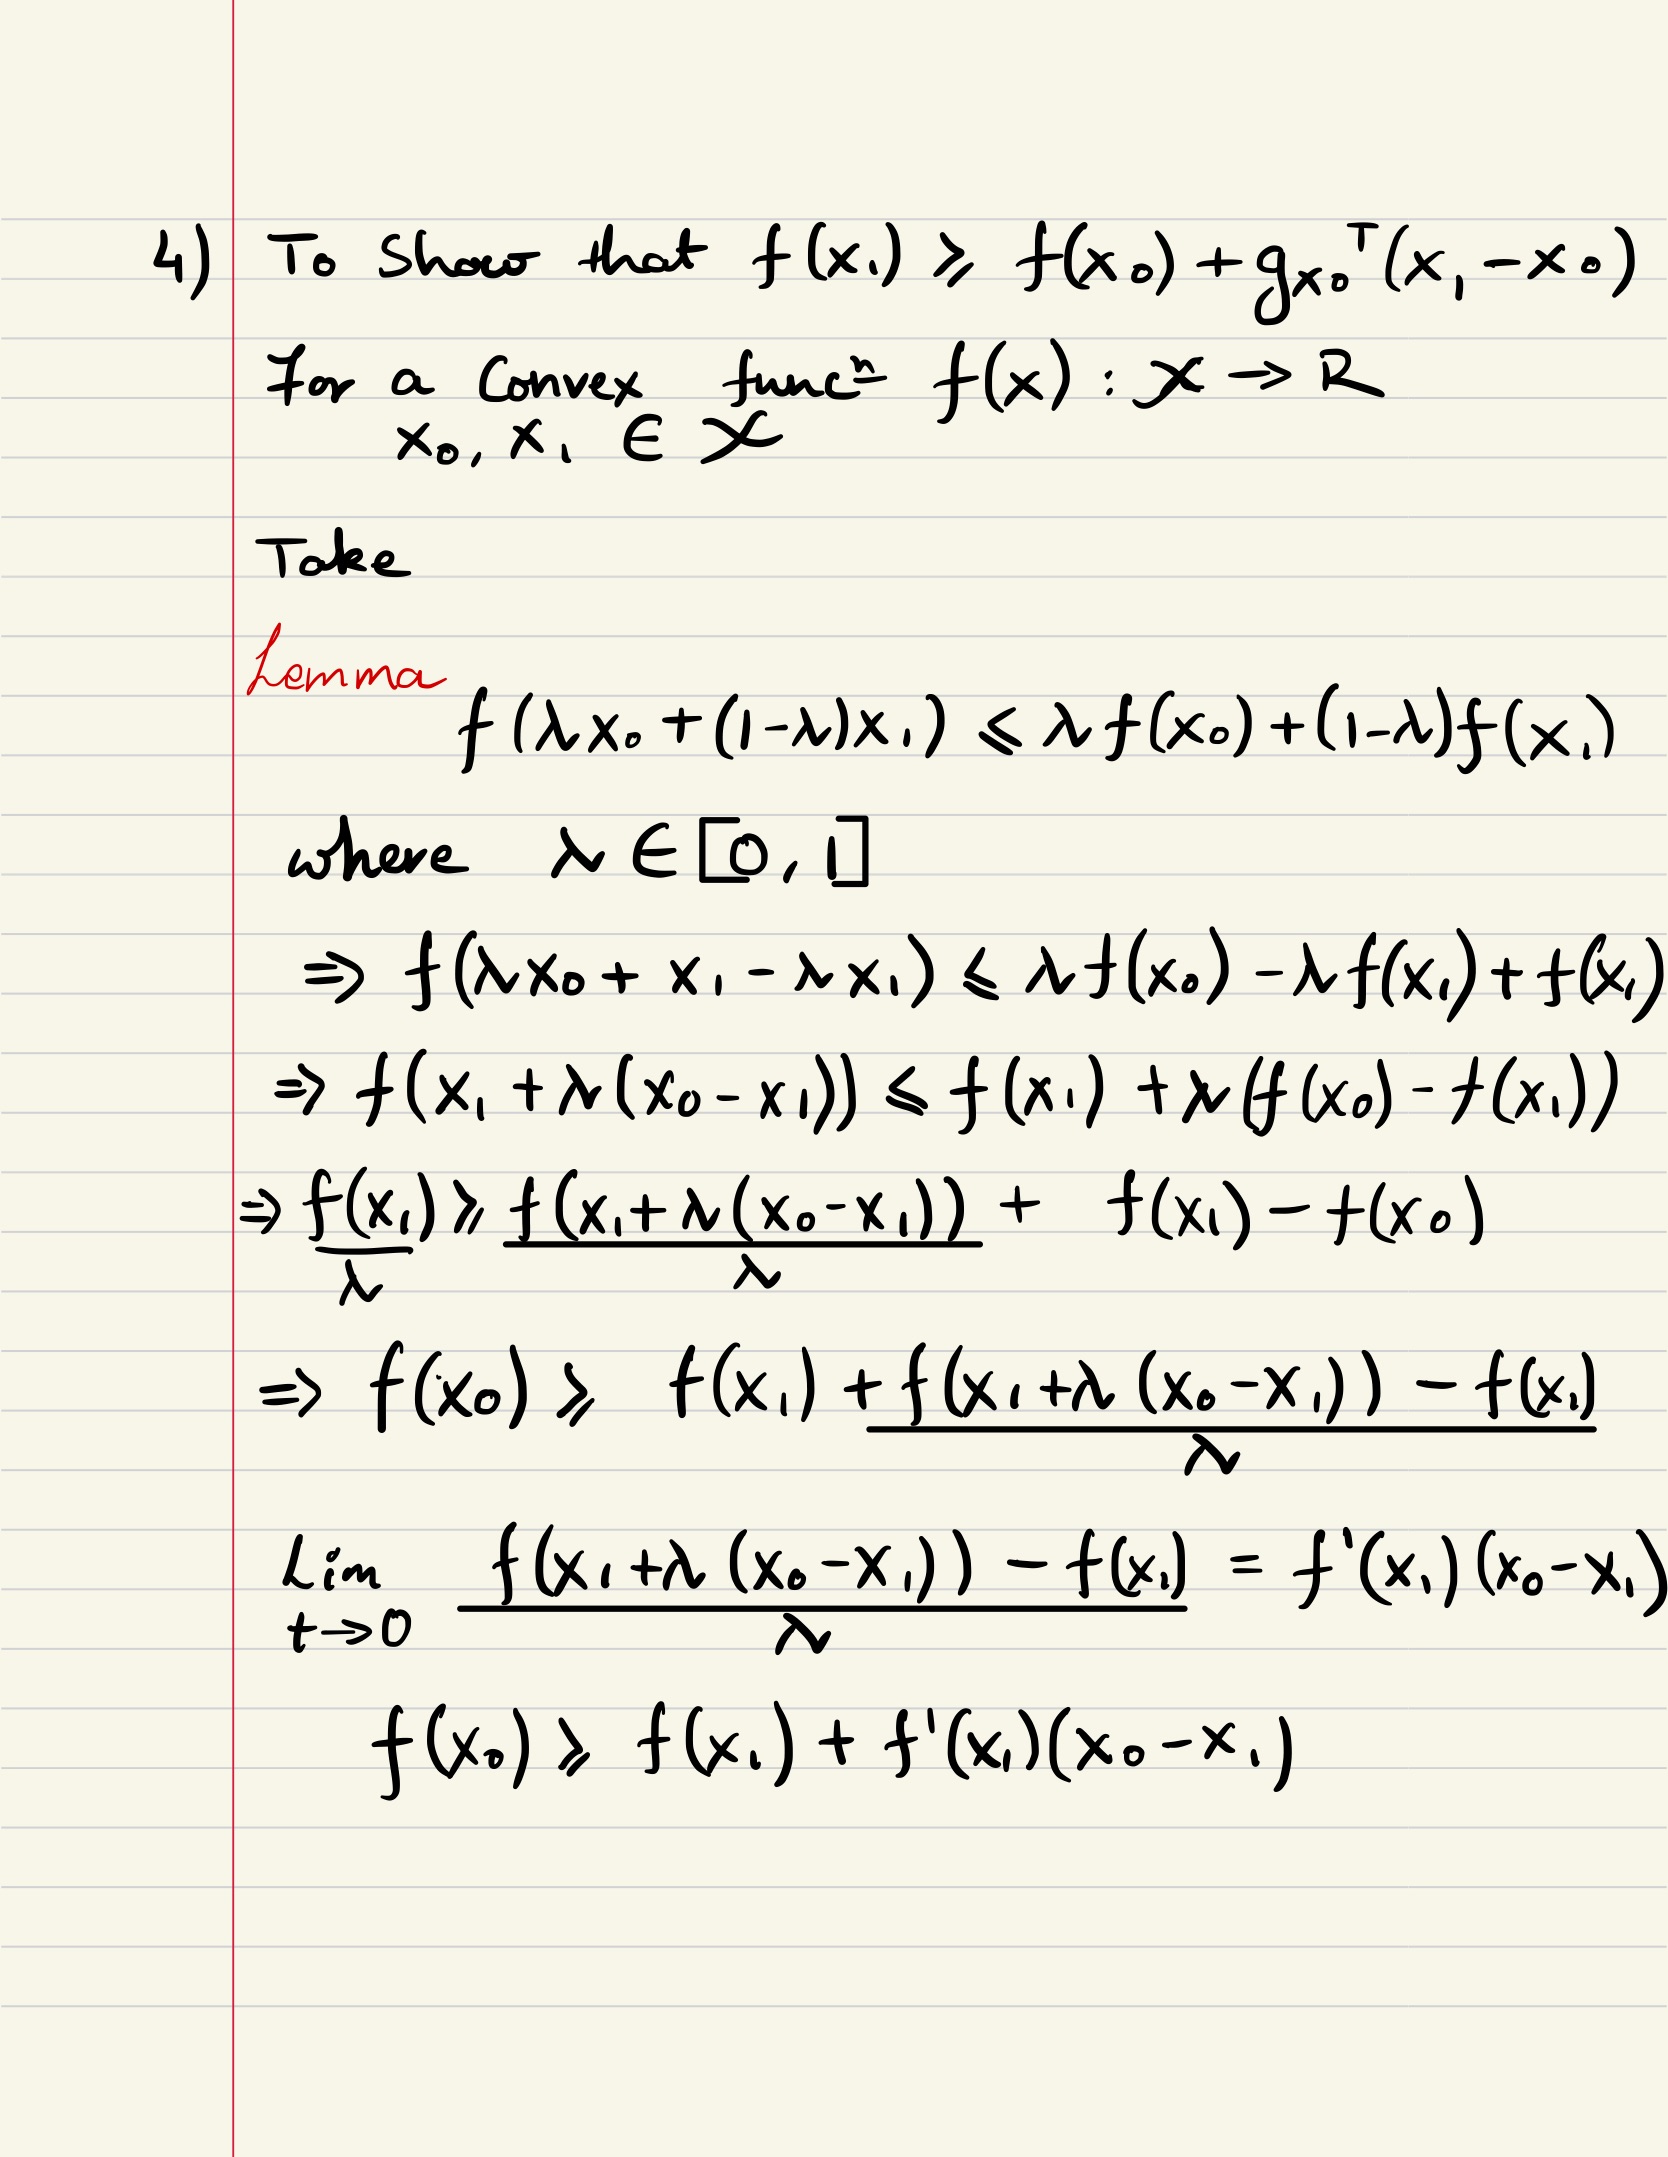 4) To Show that f(x₁) ⩾ f(x₀) + gₓ₀ᵀ(x₁ - x₀)
For a Convex funcⁿ f(x) : 𝒳 → R
x₀, x₁ ∈ 𝒳
Take
Lemma
f(λx₀ + (1-λ)x₁) ⩽ λf(x₀) + (1-λ)f(x₁)
where λ ∈ [0, 1]
⇒ f(λx₀ + x₁ - λx₁) ⩽ λf(x₀) - λf(x₁) + f(x₁)
⇒ f(x₁ + λ(x₀ - x₁)) ⩽ f(x₁) + λ(f(x₀) - f(x₁))
⇒ f(x₁)/λ ⩾ f(x₁ + λ(x₀ - x₁))/λ + f(x₁) - f(x₀)
⇒ f(x₀) ⩾ f(x₁) + (f(x₁ + λ(x₀ - x₁)) - f(x₁))/λ
Lim t→0 (f(x₁ + λ(x₀ - x₁)) - f(x₁))/λ = f'(x₁)(x₀ - x₁)
f(x₀) ⩾ f(x₁) + f'(x₁)(x₀ - x₁)